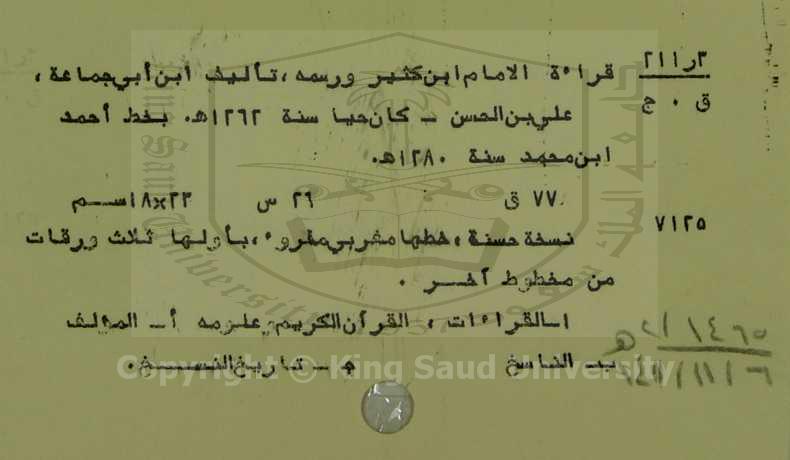 ٢١١٫٣ قراءة الامام ابن كثير ورسمه، تأليف ابن أبي جماعة،
ق ٠ ج علي بن الحسن ـ كان حيا سنة ١٢٦٢هـ. بخط أحمد
ابن محمد سنة ١٢٨٠هـ.
٧٧ ق ٢٦ س ٢٣×١٨سم
٧١٢٥ نسخة حسنة، خطها مغربي مقروء، بأولها ثلاث ورقات
من مخطوط آخر .
١ـ القراءات، القرآن الكريم وعلومه أ ـ المؤلف
ب ـ الناسخ جـ ـ تاريخ النسخ.
Copyright © King Saud University